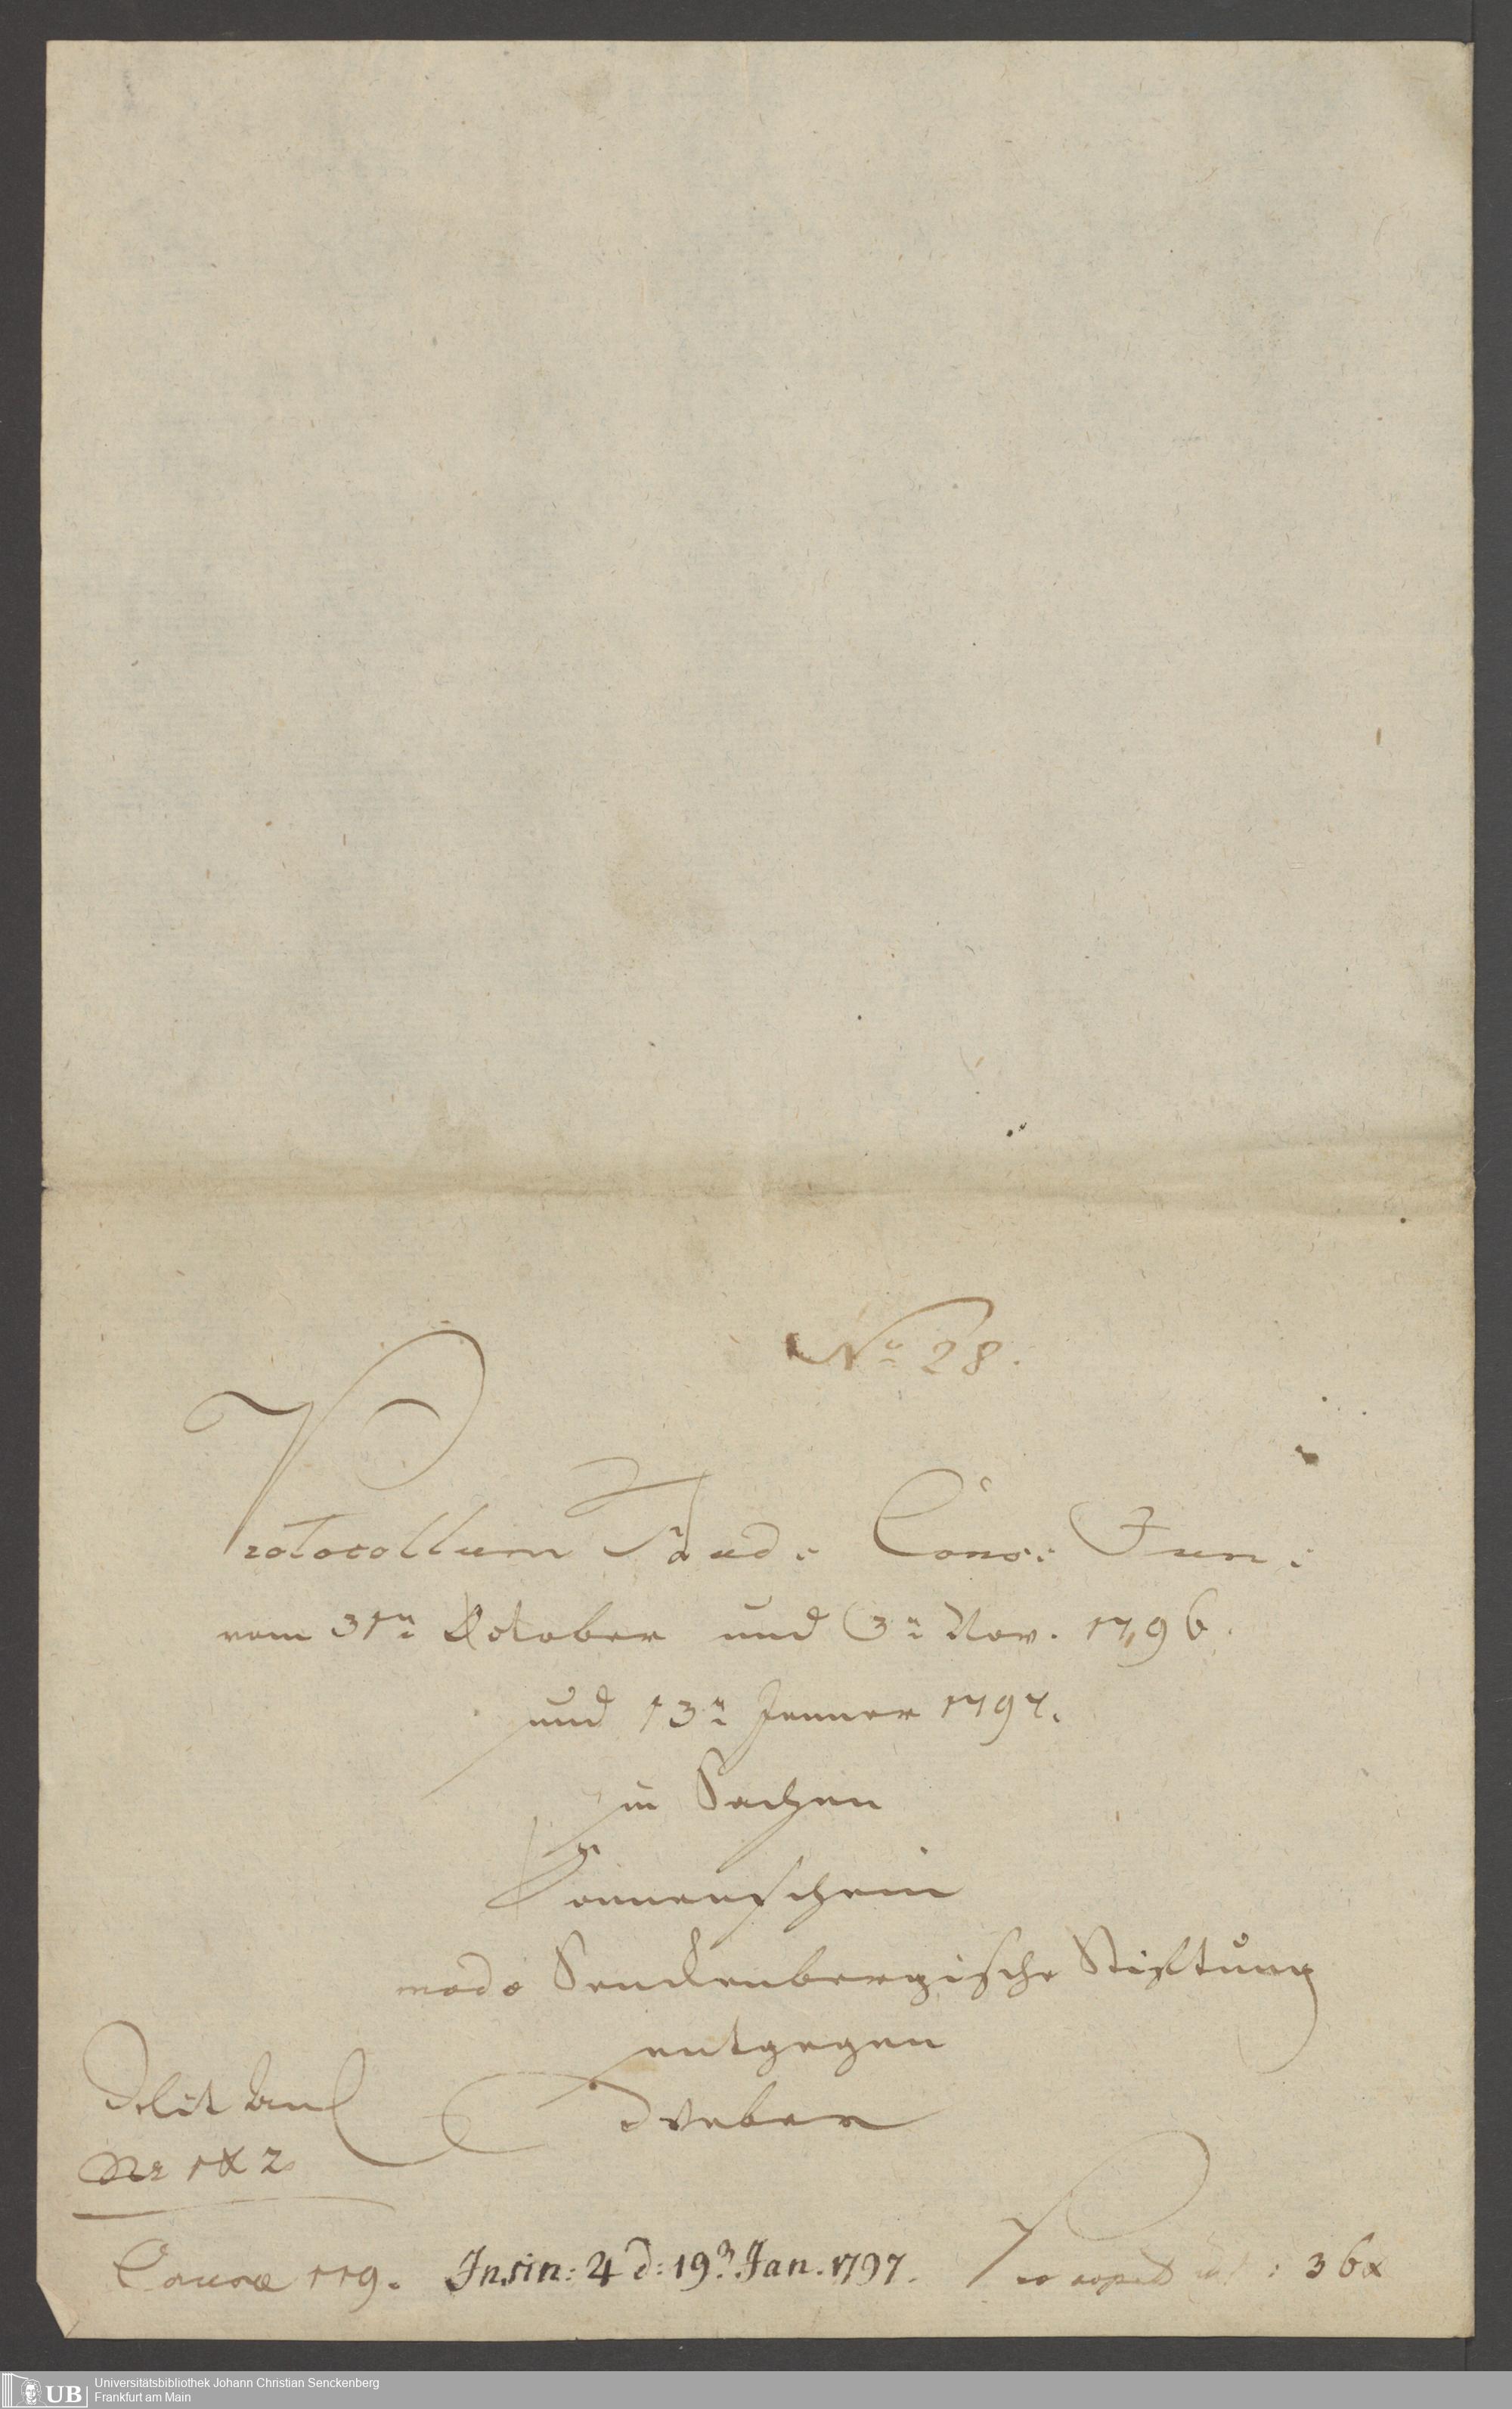 No 28.
Protocollum Jud: Cons: Fun:
vom 31n October und 3n Nov. 1796.
und 13n Jenner 1797.
in Sachen
Sonnenschein
modo Senckenbergische Stiftung
entgegen
Weber
Nr 1 & 2
Causa 119. Insin: 4 d: 19 Jan. 1797. : 36x
UB Universitätsbibliothek Johann Christian Senckenberg
Frankfurt am Main